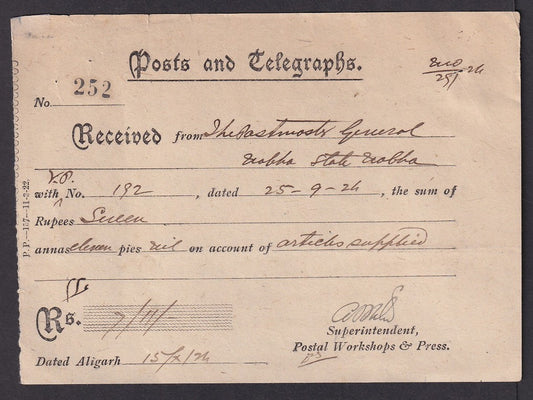 Posts and Telegraphs.
No. 252
Received from The Postmaster General
Nabha State Nabha
V.P.
with No. 192, dated 25-9-24, the sum of
Rupees Seven
annas eleven pies nil on account of articles supplied
Rs. 7/11/-
Superintendent,
Postal Workshops & Press.
Dated Aligarh 15/X/24
P. P.—157—11-3-22.